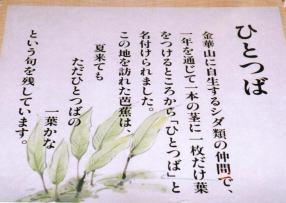 ひとつば
金華山に自生するシダ類の仲間で、
一年を通じて一本の茎に一枚だけ葉
をつけるところから「ひとつば」と
名付けられました。
この地を訪れた芭蕉は、
夏来ても
ただひとつばの
一葉かな
という句を残しています。